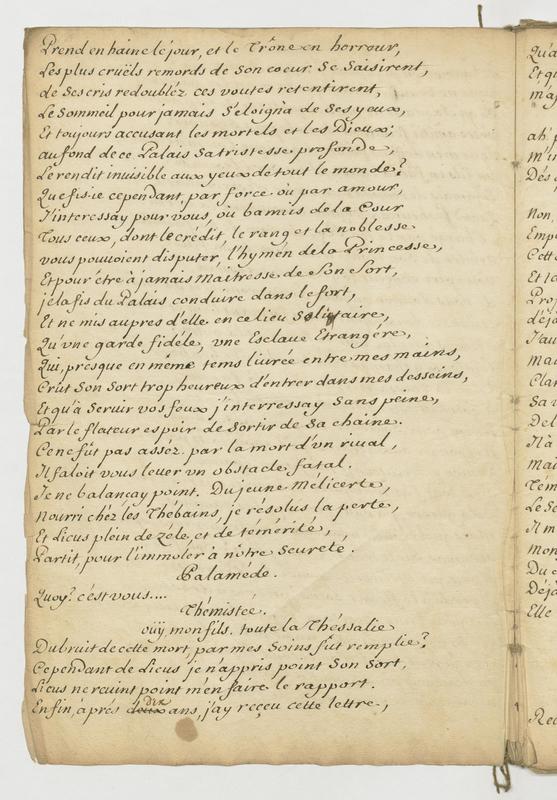 Prend en haine le jour, et le Trône en horreur,
Les plus cruëls remords de son coeur se saisirent,
de ses cris redoubléz ces voutes retentirent,
Le sommeil pour jamais s'eloigna de ses yeux,
Et toujours accusant les mortels et les Dieux;
au fond de ce Palais sa tristesse profonde,
Le rendit invisible aux yeux de tout le monde?
Que fis-ie cependant, par force, ou par amour,
J'interessay pour vous, ou bannis de la Cour
Tous ceux, dont le crédit, le rang et la noblesse
vous pouuoient disputer, l'hymen de la Princesse,
Et pour étre à jamais Maitresse de Son Sort,
je la fis du Palais conduire dans le fort,
Et ne mis aupres d'elle, en ce lieu solitaire,
Qu'vne garde fidéle, vne Esclaue Etrangére,
Qui, presque en méme tems livrée entre mes mains,
Crût Son Sort trop heureux d'entrer dans mes desseins,
Et qu'à Seruir vos feux j'interressay sans peine,
Par le flateur espoir de sortir de sa chaine.
Ce ne fût pas asséz, par la mort d'vn riual,
Il faloit vous leuer vn obstacle fatal.
Je ne balançay point. Du jeune Mélicerte,
Nourri chéz les Thébains, je résolus la perte,
Et Licus plein de zéle, et de témérité,
Partit, pour l'immoler à nôtre Seureté.
Palaméde.
Quoy? c'ést vous....
Thémistée.
oüy, mon fils. toute la Théssalie
Du bruit de cette mort, par mes Soins fut remplie?
Cependant de Licus je n'appris point Son Sort,
Licus ne reuint point m'en faire le rapport.
Dix
Enfin, aprés deux ans, j'ay reçeu cette lettre,
Qu'a
Et qu
m'ap
ah,
m'in
Dés
Non,
Emp
Cett
Et
Pro
déjà
J'au
mai
Clar
Sa
Del
Il a
mai
Tém
Le So
Il m
mon
Du
Déjà
Elle
Rec